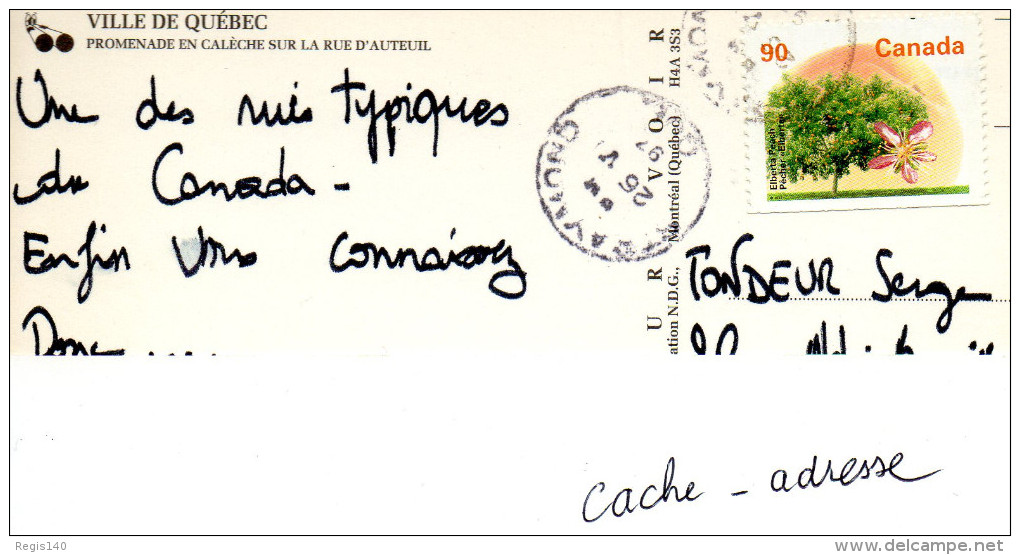 VILLE DE QUÉBEC
PROMENADE EN CALÈCHE SUR LA RUE D'AUTEUIL
Une des rues typiques
du Canada -
Enfin vous connaissez
Donc
U R V O I R
ation N.D.G., Montréal (Québec) H4A 3S3
90 Canada
Elberta Peach
Pêcher «Elberta»
TONDEUR Serge
cache - adresse
Regis140
www.delcampe.net